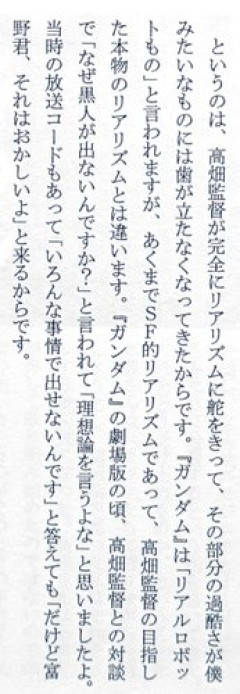 というのは、高畑監督が完全にリアリズムに舵をきって、その部分の過酷さが僕
みたいなものには歯が立たなくなってきたからです。『ガンダム』は「リアルロボッ
トもの」と言われますが、あくまでＳＦ的リアリズムであって、高畑監督の目指し
た本物のリアリズムとは違います。『ガンダム』の劇場版の頃、高畑監督との対談
で「なぜ黒人が出ないんですか？」と言われて「理想論を言うよな」と思いましたよ。
当時の放送コードもあって「いろんな事情で出せないんです」と答えても「だけど富
野君、それはおかしいよ」と来るからです。